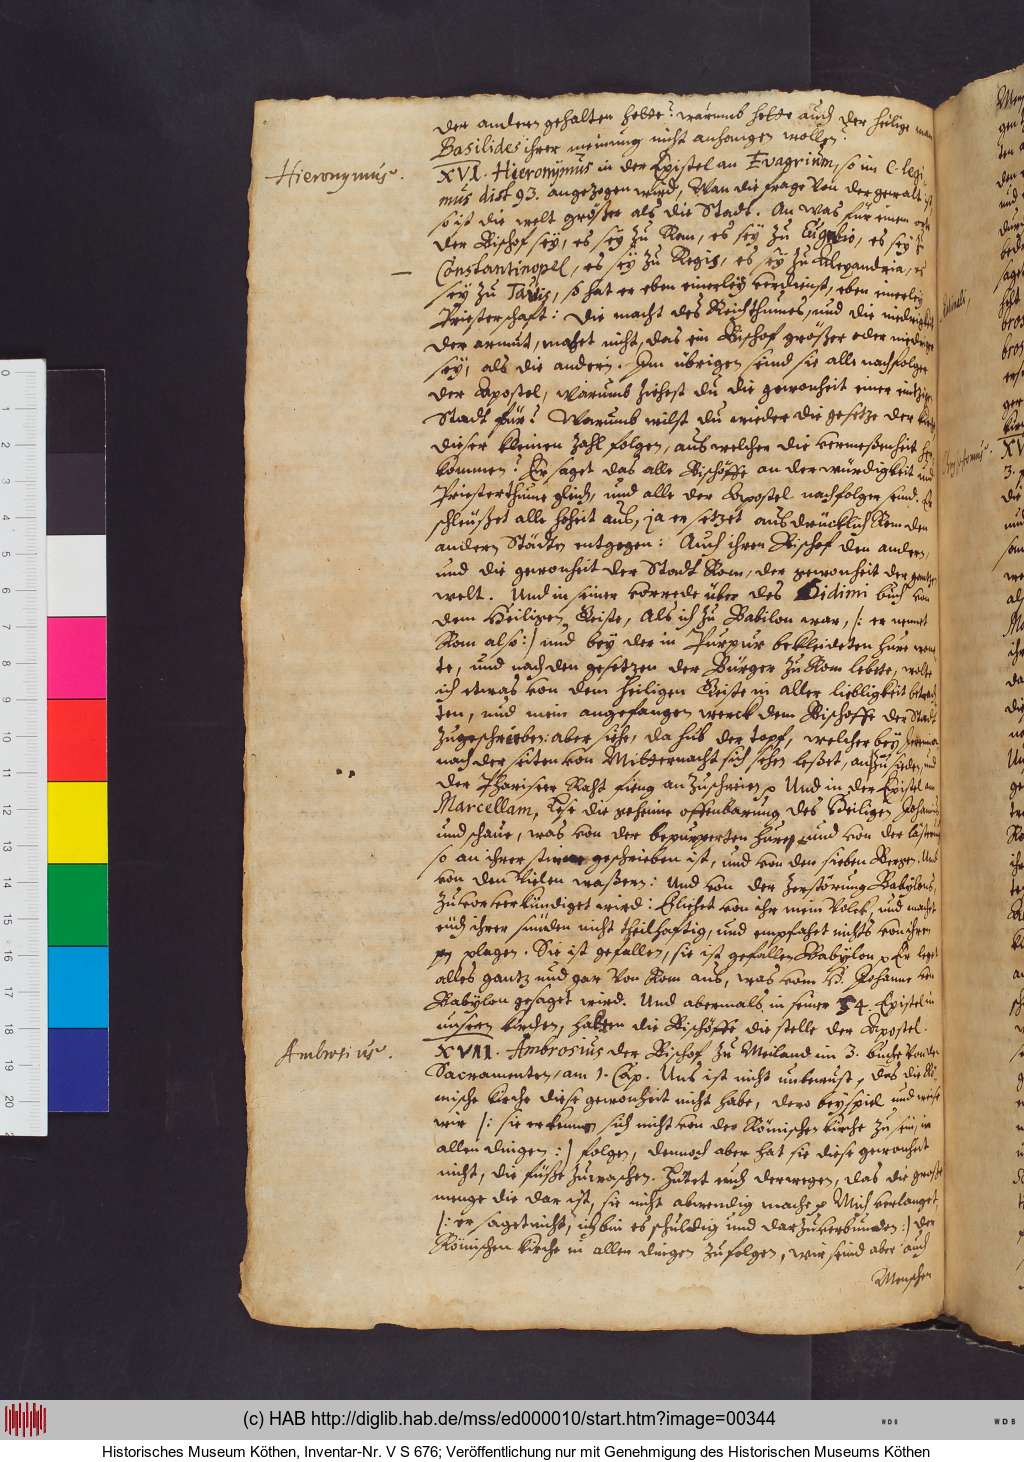 der anderen gehalten hette? warumb hette auch der heilige man
Basilides ihrer meinung nicht anhangen wollen?
Hieronymus.
XVI. Hieronymus in der Epistel an Evagrium, so im C. legi-
mus dist. 93. angezogen wird, Wan die frage von der gewalt ist
so ist die welt größer als die Stadt. An was für einem orth
der Bischof sey, es sey zu Rom, es sey zu Eugubio, es sey zu
Constantinopel, es sey zu Regis, es sey zu Alexandria, es
sey zu Tanis, so hat er eben einerley verdienst, eben einerley
Priesterschaft: Die macht des Reichthumes, und die niedrigkeit
der armut, machet nicht, das ein Bischof größer oder niedriger
sey, als die andern. Im übrigen seind sie alle nachfolger
der Apostel, warumb ziehest du die gewonheit einer eintzigen
Stadt für? Warumb wilst du wieder die gesetze der kirche
dieser kleinen zahl folgen, aus welcher die vermeßenheit her-
kommen? Er saget das alle Bischöffe an der würdigkeit und
Priesterthume gleich, und alle der Apostel nachfolger seind. Er
schleußet alle hoheit aus, ja er setzet ausdrücklich Rom den
andern Städten entgegen: Auch ihren Bischof den andern,
und die gewonheit der Stadt Rom, der gewonheit der gantzen
welt. Und in seiner vorrede über des Didimi buch von
dem Heiligen Geiste, Als ich zu Babilon war, /: er nennet
Rom also :/ und bey der in Purpur bekleideten hure wohn-
te, und nach den gesetzen der Bürger zu Rom lebete, wolte
ich etwas von dem heiligen Geiste in aller liebligkeit betrach-
ten, und mein angefangen werck dem Bischoffe der Stadt
zugeschrieben: aber siehe, da hub der topf, welcher bey Jeremia
nach der seiten von Mitternacht sich sehen leßet, an zu sieden, und
der Phariseer Raht fieng an zu schreien. Und in der Epistel an
Marcellam, Lese die geheime offenbarung des Heiligen Johannis
und schaue, was von der bepurperten huren und von der lästerung
so an ihrer stirne geschrieben ist, und von den sieben Bergen. Und
von den vielen waßern: Und von der zerstörung Babylons,
zuvor verkündiget wird: Gehet von ihr mein Volck, und machet
euch ihrer sünden nicht theilhaftig, und empfahet nichts von ihren
plagen. Sie ist gefallen, sie ist gefallen Babylon. Er leget
alles gantz und gar von Rom aus, was vom H. Johanne von
Babylon gesaget wird. Und abermals in seiner 54. Epistel in
unsern kirchen, halten die Bischöffe die stelle der Apostel.
Ambrosius.
XVII. Ambrosius der Bischof zu Meiland im 3. buche von den
Sacramenten, am 1. Cap. Uns ist nicht unbewust, das die Rö-
mische kirche diese gewonheit nicht habe, dero beyspiel und weise
wir /: sie erkennen sich nicht von der Römischen kirche zu sein, in
allen dingen :/ folgen, dennoch aber hat sie diese gewonheit
nicht, die füße zu waschen. Hütet euch derwegen, das die große
menge die dar ist, sie nicht abwendig mache. Mich verlanget,
/: er saget nicht, ich bin es schuldig und darzu verbunden :/ der
Römischen kirche in allen dingen zu folgen, wir seind aber auch
Menschen
(c) HAB http://diglib.hab.de/mss/ed000010/start.htm?image=00344
Historisches Museum Köthen, Inventar-Nr. V S 676; Veröffentlichung nur mit Genehmigung des Historischen Museums Köthen